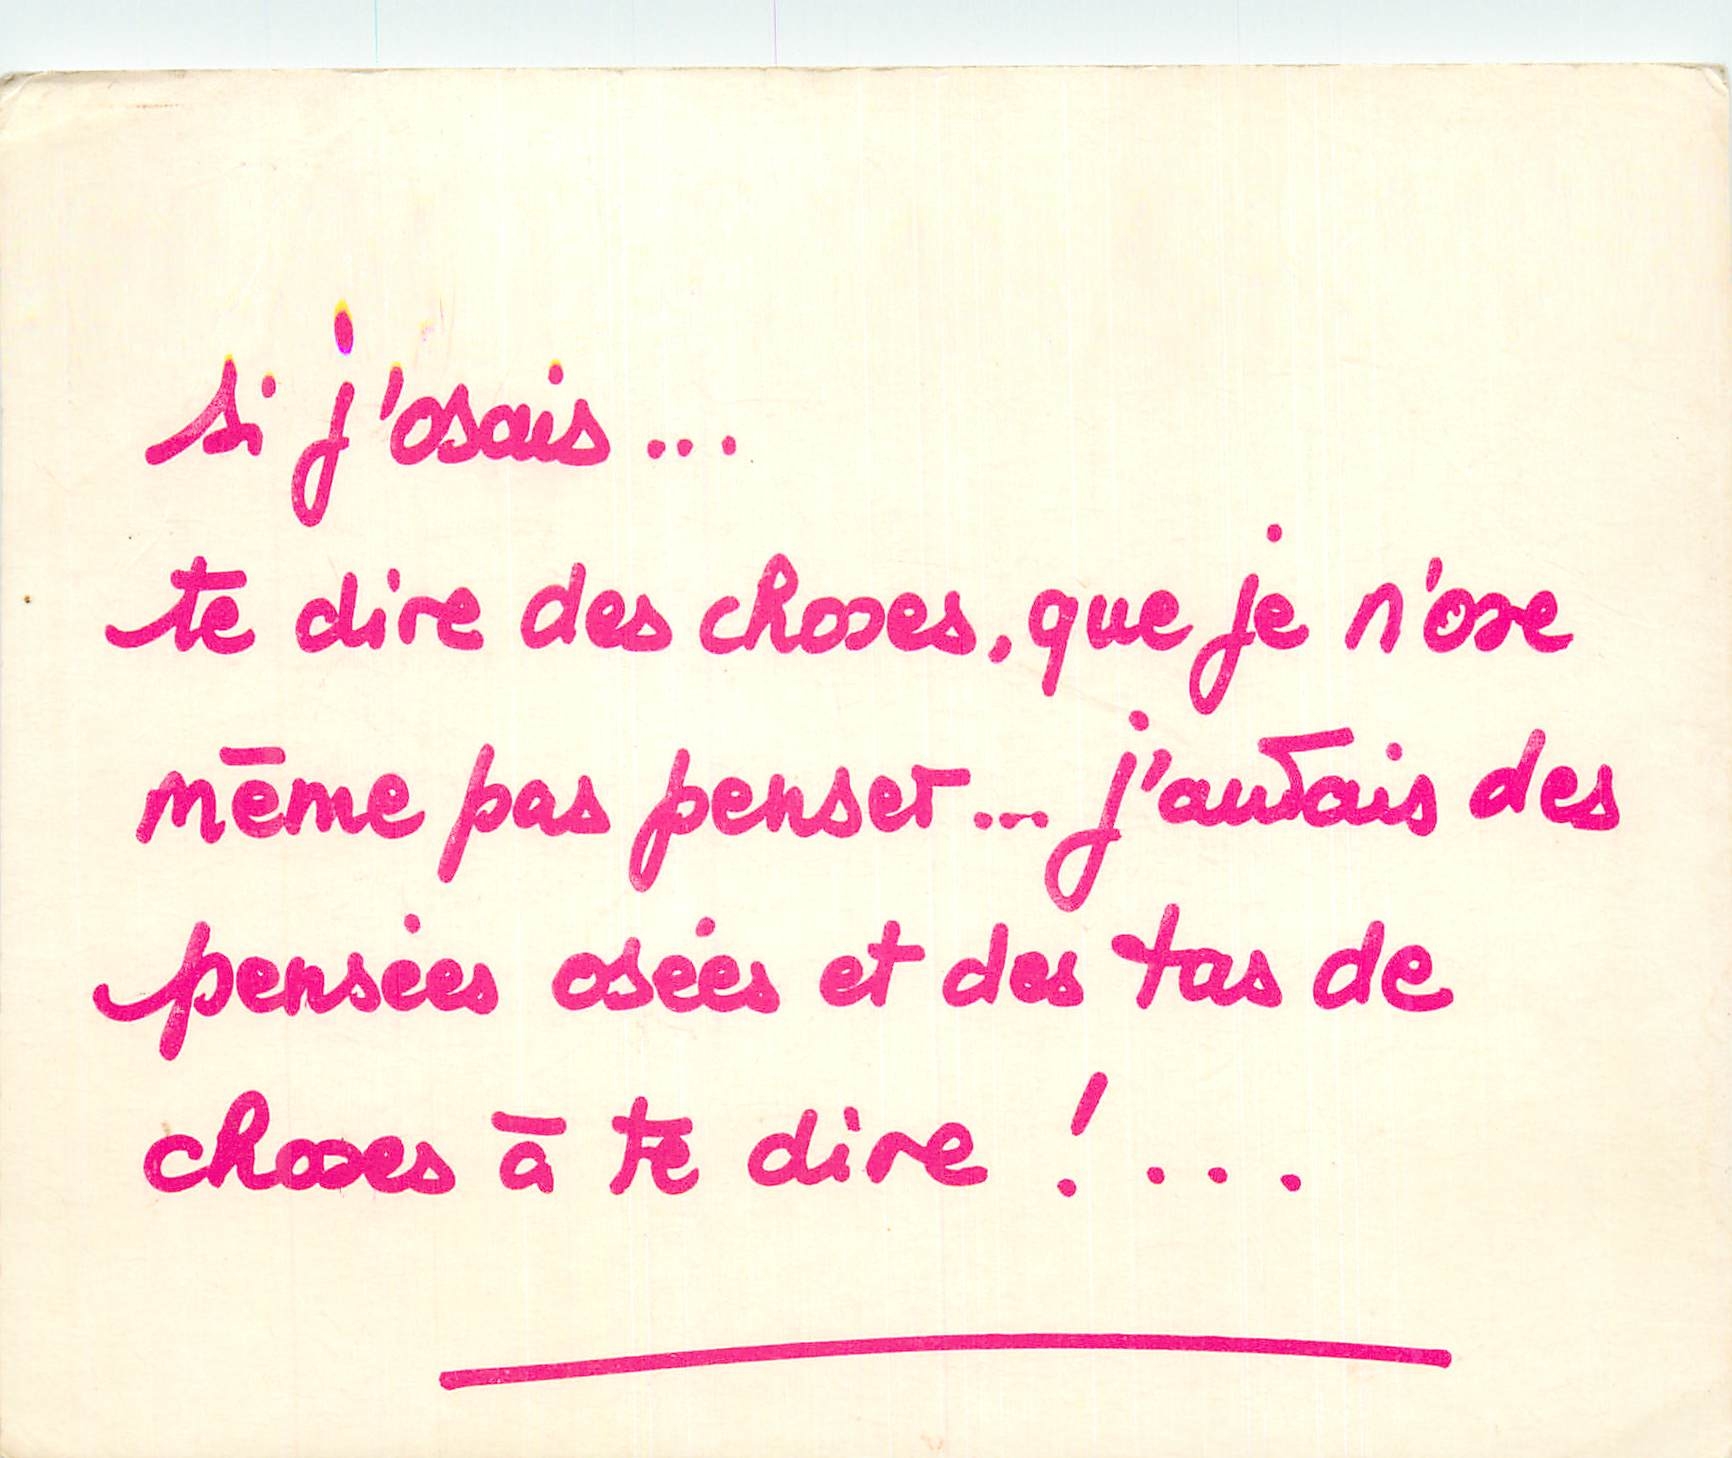 si j'osais...
te dire des choses, que je n'ose
même pas penser... j'aurais des
pensées osées et des tas de
choses à te dire !...